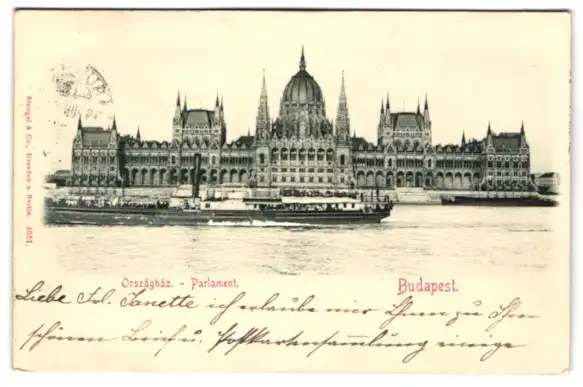 Stengel & Co., Dresden u. Berlin. 4651.
Országház. - Parlament.
Budapest.
Liebe Frl. Janette ich erlaube mir Ihnen zu Ihrer
schönen Brief u. Postkartensammlung einige